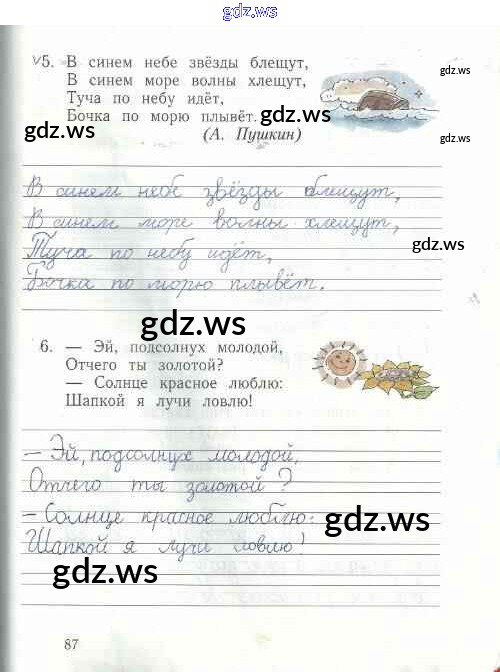 gdz.ws
gdz.ws
√5. В синем небе звёзды блещут,
В синем море волны хлещут,
Туча по небу идёт,
Бочка по морю плывёт.
(А. Пушкин)
gdz.ws
gdz.ws
В синем небе звёзды блещут,
В синем море волны хлещут,
Туча по небу идёт,
gdz.ws
Бочка по морю плывёт.
gdz.ws
6. — Эй, подсолнух молодой,
Отчего ты золотой?
— Солнце красное люблю:
Шапкой я лучи ловлю!
gdz.ws
— Эй, подсолнух молодой,
Отчего ты золотой?
— Солнце красное люблю:
gdz.ws
Шапкой я лучи ловлю!
gdz.ws
87
gdz.ws